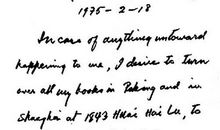 1975-2-18
In case of anything untoward
happening to me, I desire to turn
over all my books in Peking and in
Shanghai at 1843 Huai Hai Lu, to